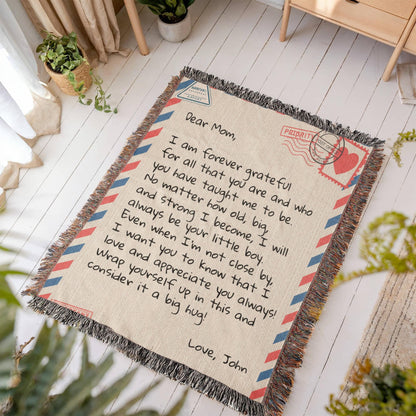 Dear Mom,
I am forever grateful
for all that you are and who
you have taught me to be.
No matter how old, big,
and strong I become, I will
always be your little boy.
Even when I'm not close by,
I want you to know that I
love and appreciate you always!
Wrap yourself up in this and
consider it a big hug!
Love, John
PRIORITY